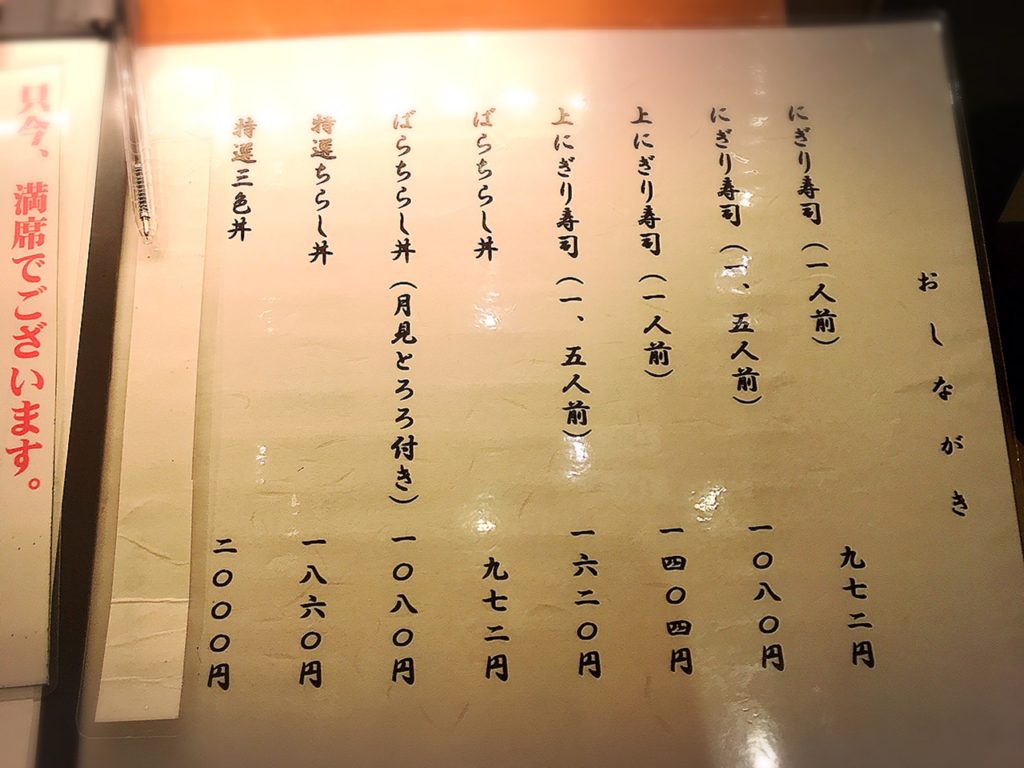 おしながき
にぎり寿司（一人前） 九七二円
にぎり寿司（一、五人前） 一〇八〇円
上にぎり寿司（一人前） 一四〇四円
上にぎり寿司（一、五人前） 一六二〇円
ばらちらし丼 九七二円
ばらちらし丼（月見とろろ付き） 一〇八〇円
特選ちらし丼 一八六〇円
特選三色丼 二〇〇〇円
只今、満席でございます。